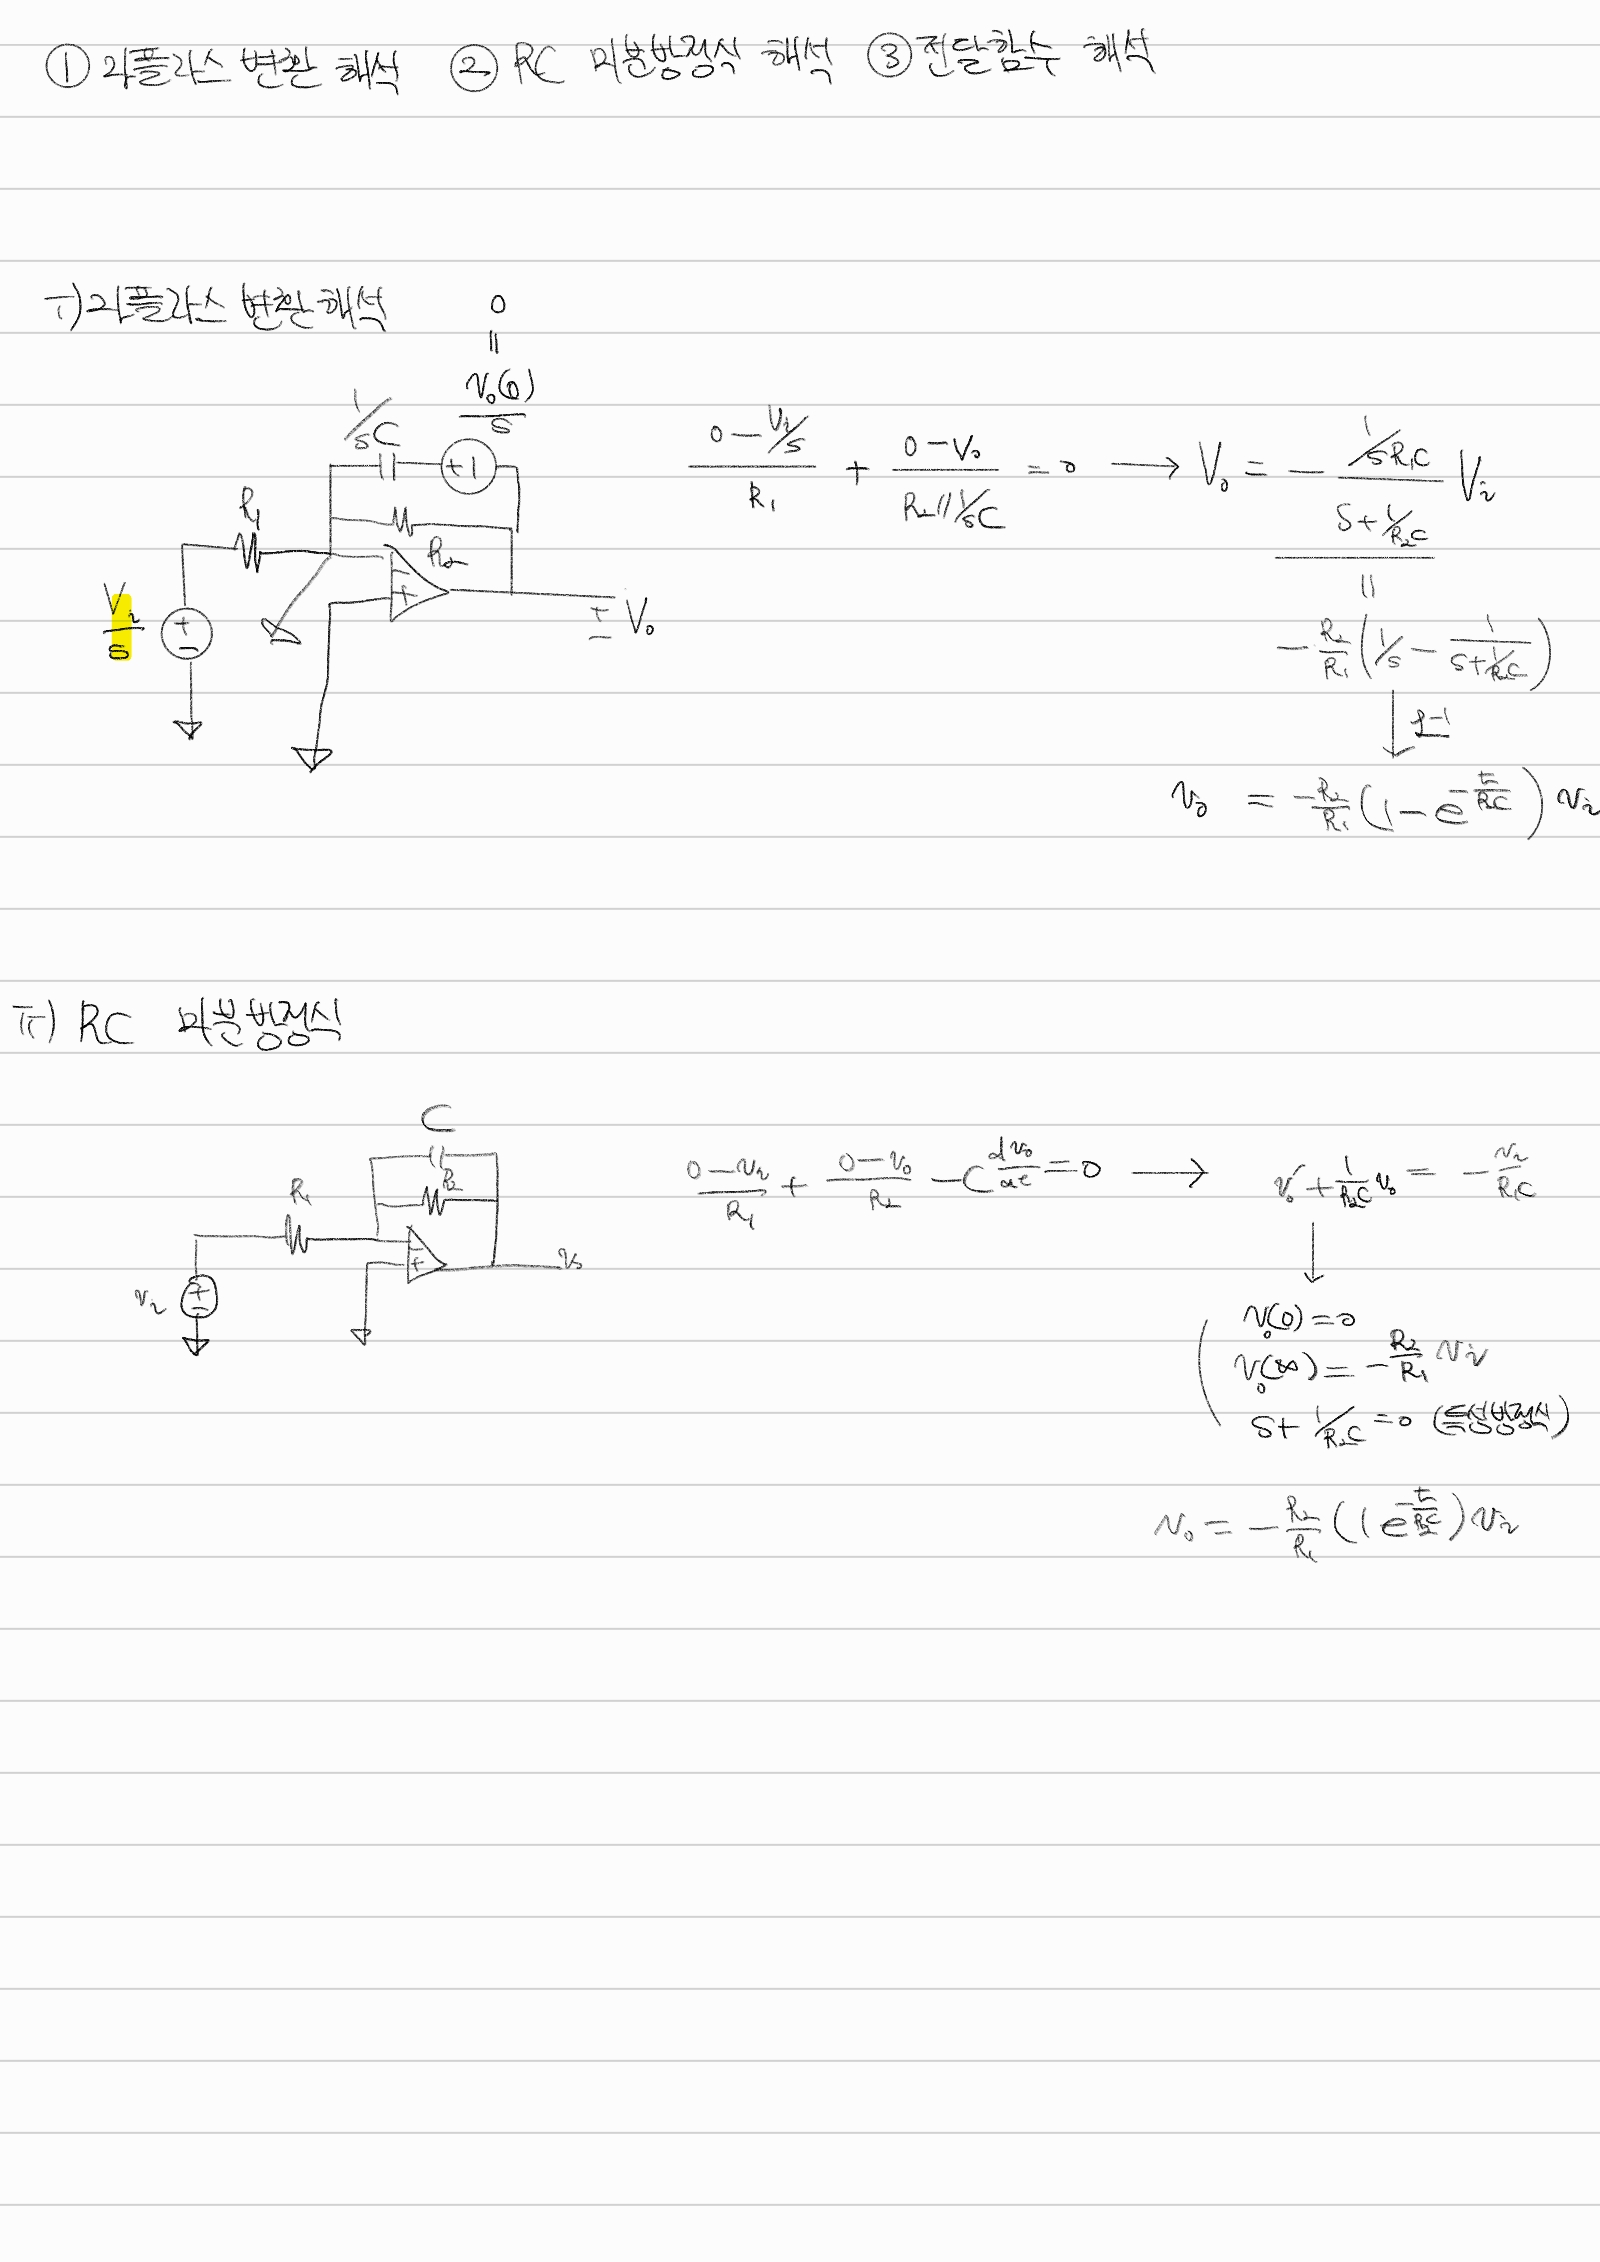 ① 라플라스 변환 해석 ② RC 미분방정식 해석 ③ 전달함수 해석
i) 라플라스 변환 해석
0
||
v₀(0)/s
1/sC
+ -
R₁
R₂
Vᵢ/s
+ -
- +
+ - V₀
(0 - Vᵢ/s)/R₁ + (0 - V₀)/(R₂ // 1/sC) = 0 → V₀ = - (1/sR₁C)/(s + 1/R₂C) Vᵢ
||
- R₂/R₁ (1/s - 1/(s + 1/R₂C))
↓ ℒ⁻¹
v₀ = -R₂/R₁ (1 - e^(-t/R₂C)) vᵢ
ii) RC 미분방정식
C
R₂
R₁
vᵢ
+ -
- +
v₀
(0 - vᵢ)/R₁ + (0 - v₀)/R₂ - C dv₀/dt = 0 → v₀' + 1/R₂C v₀ = - vᵢ/R₁C
↓
v₀(0) = 0
v₀(∞) = - R₂/R₁ vᵢ
s + 1/R₂C = 0 (특성방정식)
v₀ = - R₂/R₁ (1 e^(-t/R₂C)) vᵢ